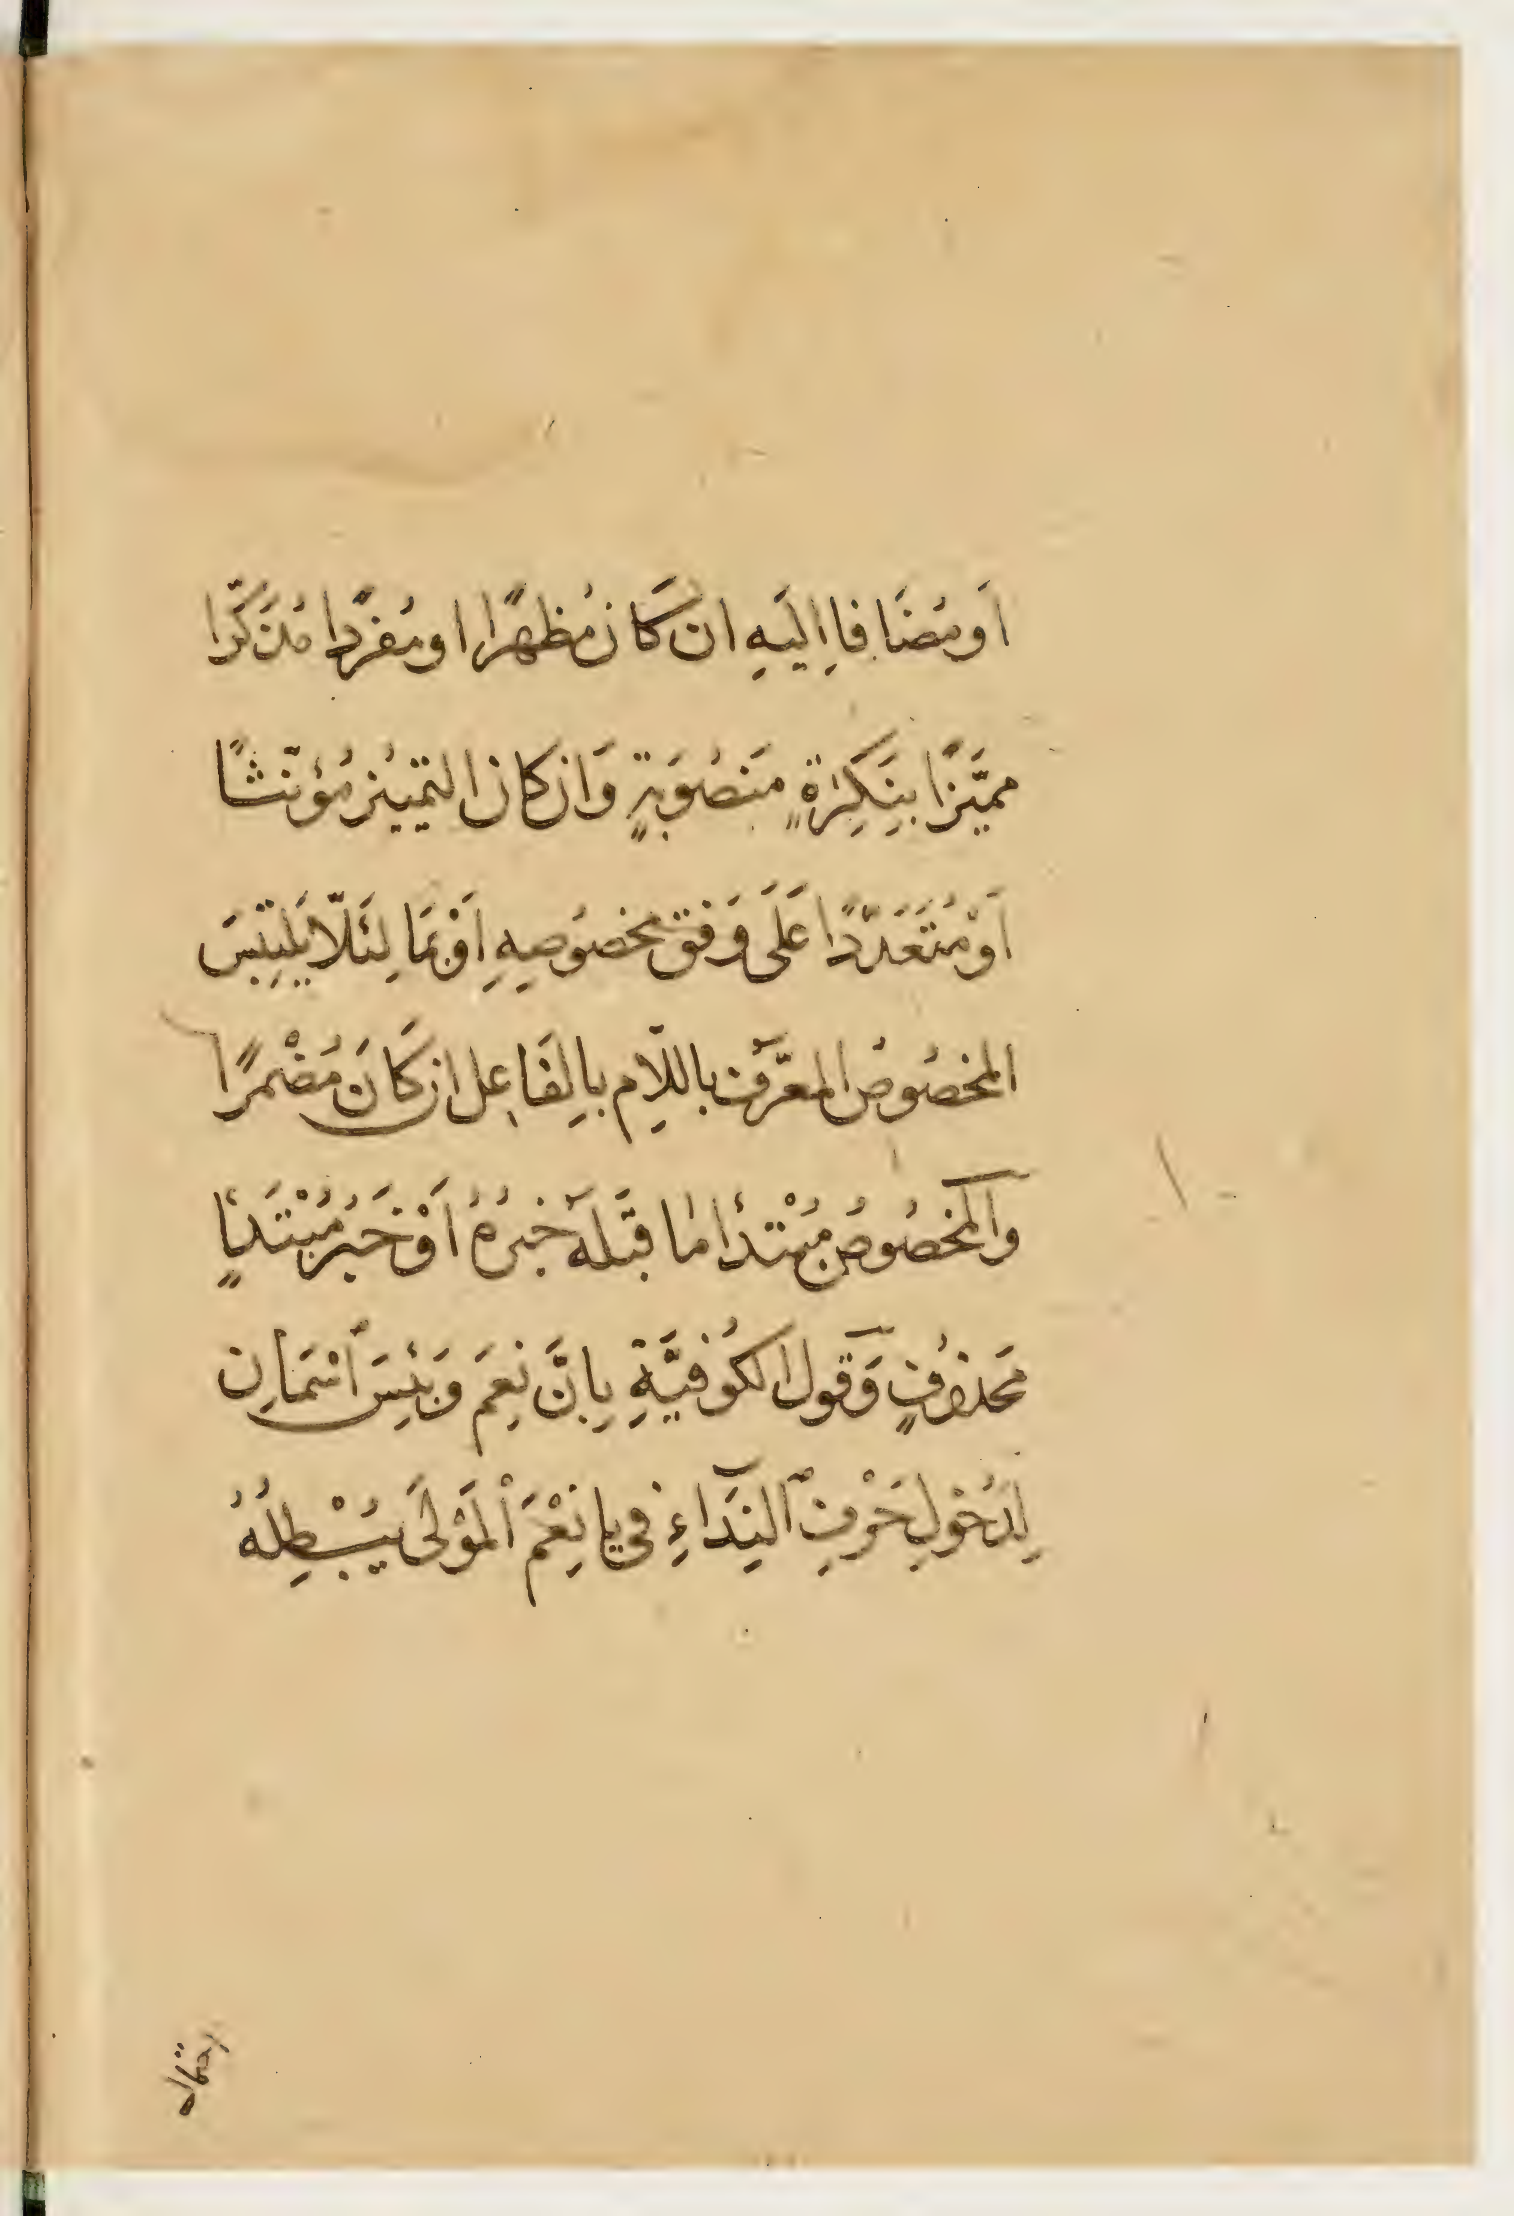 اَو مُضَافا اِلَيهِ ان كَانَ مُظهَرًا او مُفرَدا مُذَكَّرا
مميَّزًا بِنَكِرَةٍ مَنصُوبَةٍ وَان كان التمييُز مُؤنّثًا
اَوْ مُتَعَدّدًا عَلَى وَفق مخصُوصِهِ اَوْ بمَا لِئَلّا يَلتبِسَ
المخصُوصُ المعَرَّف باللّامِ بالِفَاعِل ان كَانَ مُضْمَرًا
وَالمخصُوصُ مُبْتدأ مَا قبَلهُ خبرُهُ اَوْ خَبَرُ مُبْتَدَاٍ
مَحذوُفٍ وَقول الكوُفيَّةِ بِانَّ نِعمَ وَبئِسَ اسْمَانِ
لِدُخوُلِ حَرْفِ النِدَاءِ فى يا نِعْمَ المَوْلَى يُبْطِلُهُ